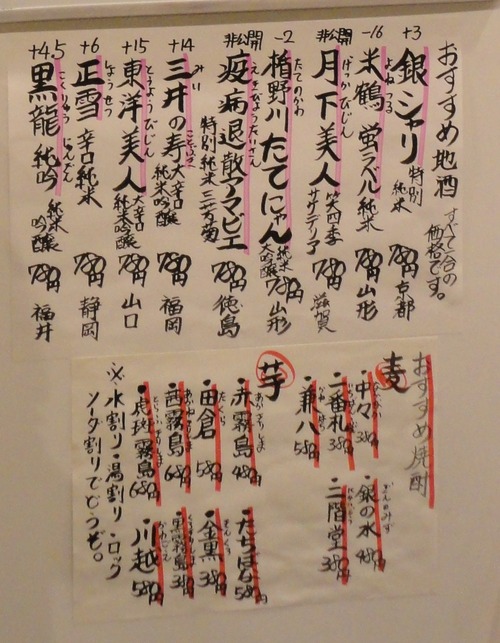 おすすめ地酒
すべて一合の
価格です。
+3
銀シャリ 特別純米 780円 京都
-16
よねつる
米鶴 蛍ラベル 純米 780円 山形
非公開
げっかびじん
月下美人 笑四季 サケデリア 780円 滋賀
-2
たてのかわ
楯野川 たてにゃん 純米大吟醸 780円 山形
非公開
えきびょうたいさん
疫病退散アマビエ 特別純米 三芳菊 780円 徳島
+14
みい ことぶき
三井の寿 大辛口 純米吟醸 780円 福岡
+15
とうようびじん
東洋美人 大辛口 純米吟醸 780円 山口
+6
しょうせつ
正雪 辛口純米 780円 静岡
+4.5
こくりゅう じゅんぎん
黒龍 純吟 純米吟醸 780円 福井
おすすめ焼酎
麦
・中々 380円
・銀の水 480円
ぎんのみず
・一番札 380円
・二階堂 380円
・兼八 580円
芋
あかきりしま
・赤霧島 480円
・たちばな 580円
たくら
・田倉 580円
・金黒 380円
・茜霧島 680円
・黒霧島 380円
・虎斑霧島 680円
・川越 580円
※水割り・湯割り・ロック
ソーダ割りでどうぞ。